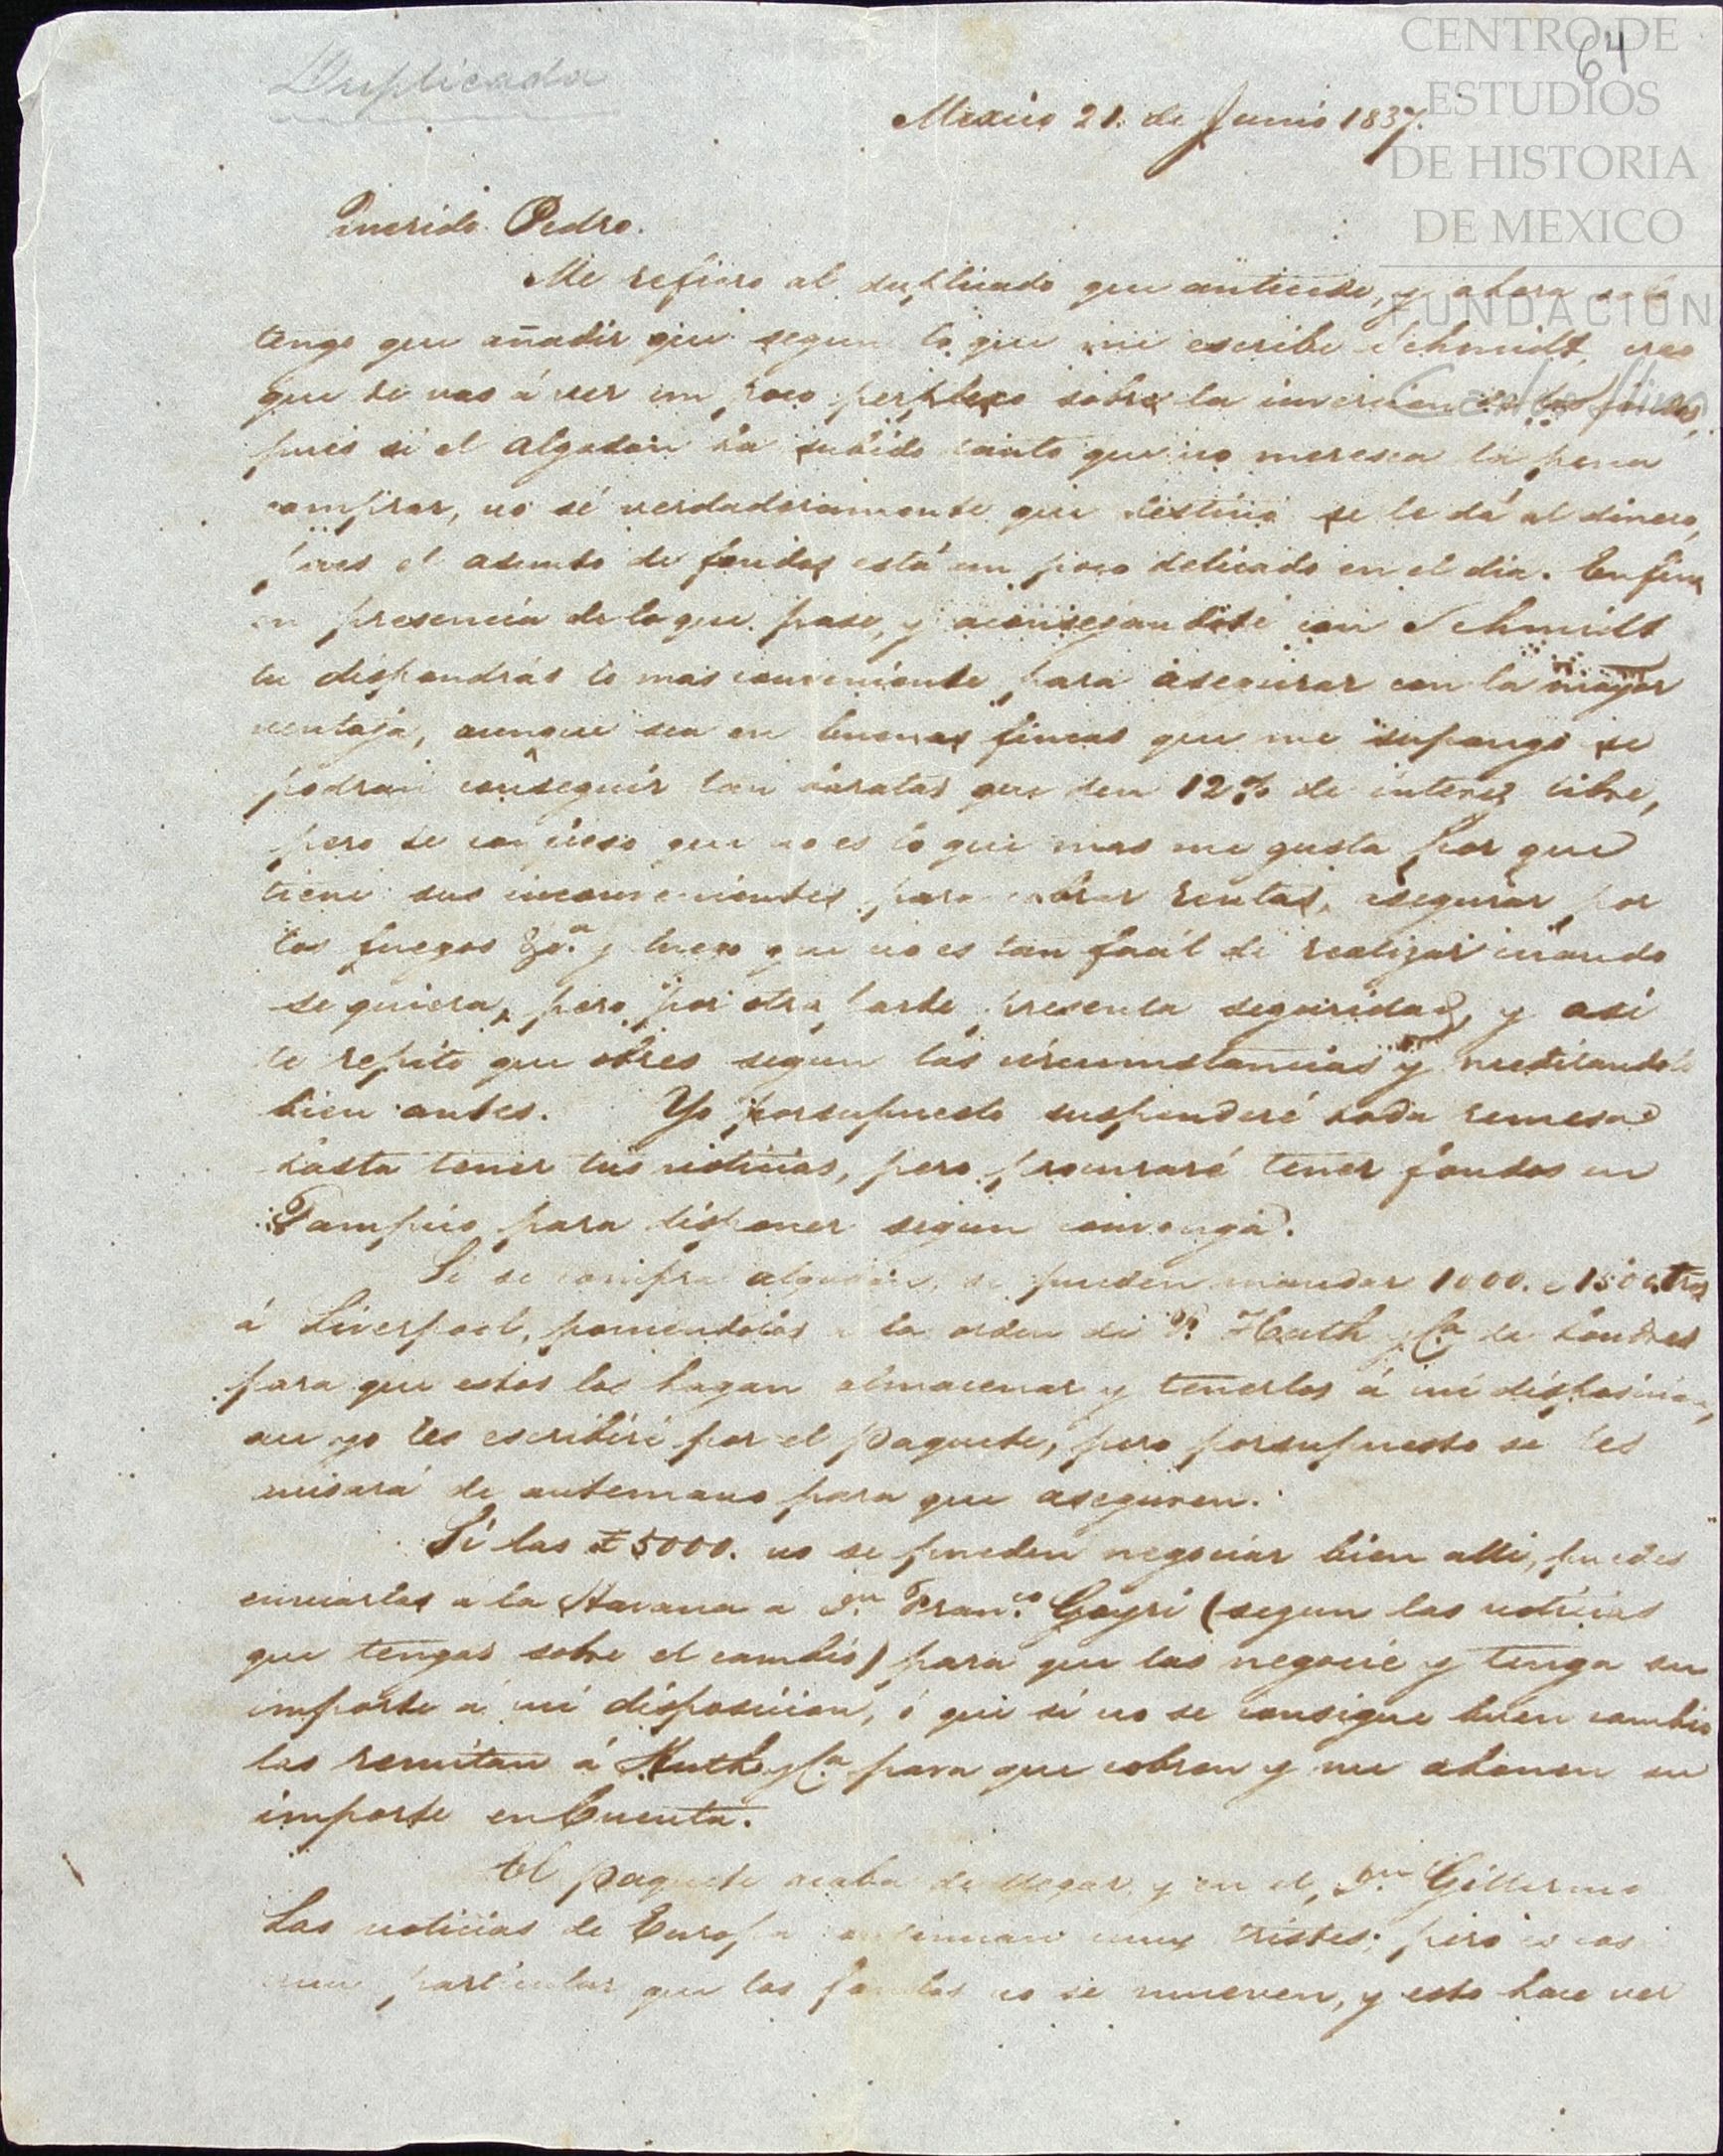 CENTRO DE
ESTUDIOS
DE HISTORIA
DE MEXICO
FUNDACION
64
Duplicada
Mexico 21. de Junio 1837.
Querido Pedro.
Me refiero al duplicado que antecede, y ahora solo
tengo que añadir que segun lo que me escribe Schmidt, creo
que te vas á ver un poco perplexo sobre la inversion de los fondos,
pues si el algodon ha subido tanto que no meresca la pena
comprar, no sé verdaderamente que destino se le dá al dinero,
pues el asunto de fondos está un poco delicado en el dia. En fin,
en presencia de lo que pase, y aconsejandote con Schmidt
tu dispondrás lo mas conveniente para asegurar con la mayor
ventaja, aunque sea en buenas fincas que me supongo se
podran conseguir tan baratas que den 12% de interes libre,
pero te confieso que no es lo que mas me gusta por que
tiene sus inconvenientes para cobrar rentas, asegurar por
los fuegos &a. y luego que no es tan facil de realizar cuando
se quiera, pero por otra parte presenta seguridad, y asi
te repito que obres segun las circumstancias y meditandolo
bien antes. Yo porsupuesto suspenderé toda remesa
hasta tener tus noticias, pero procuraré tener fondos en
Tampico para disponer segun convenga.
Si se compra algodon, se pueden mandar 1000. a 1500
á Liverpool, poniendolos a la orden de Huth y Ca. de Londres
para que estos los hagan almacenar y tenerlos á mi disposicion,
que yo les escribiré por el paquete, pero porsupuesto se les
avisará de antemano para que aseguren.
Si las £5000. no se pueden negociar bien alli, puedes
enviarlas a la Havana a Dn. Franco. Goyri (segun las noticias
que tengas sobre el cambio) para que las negocie y tenga su
importe á mi disposicion, ó que si no se consigue buen cambio
las remitan á Huth y Ca. para que cobren y me abonen su
importe en Cuenta.
El paquete acaba de llegar y en el, Dn. Gillermo
Las noticias de Europa continuan muy tristes; pero es cosa
muy particular que los fondos no se mueven, y esto hace ver